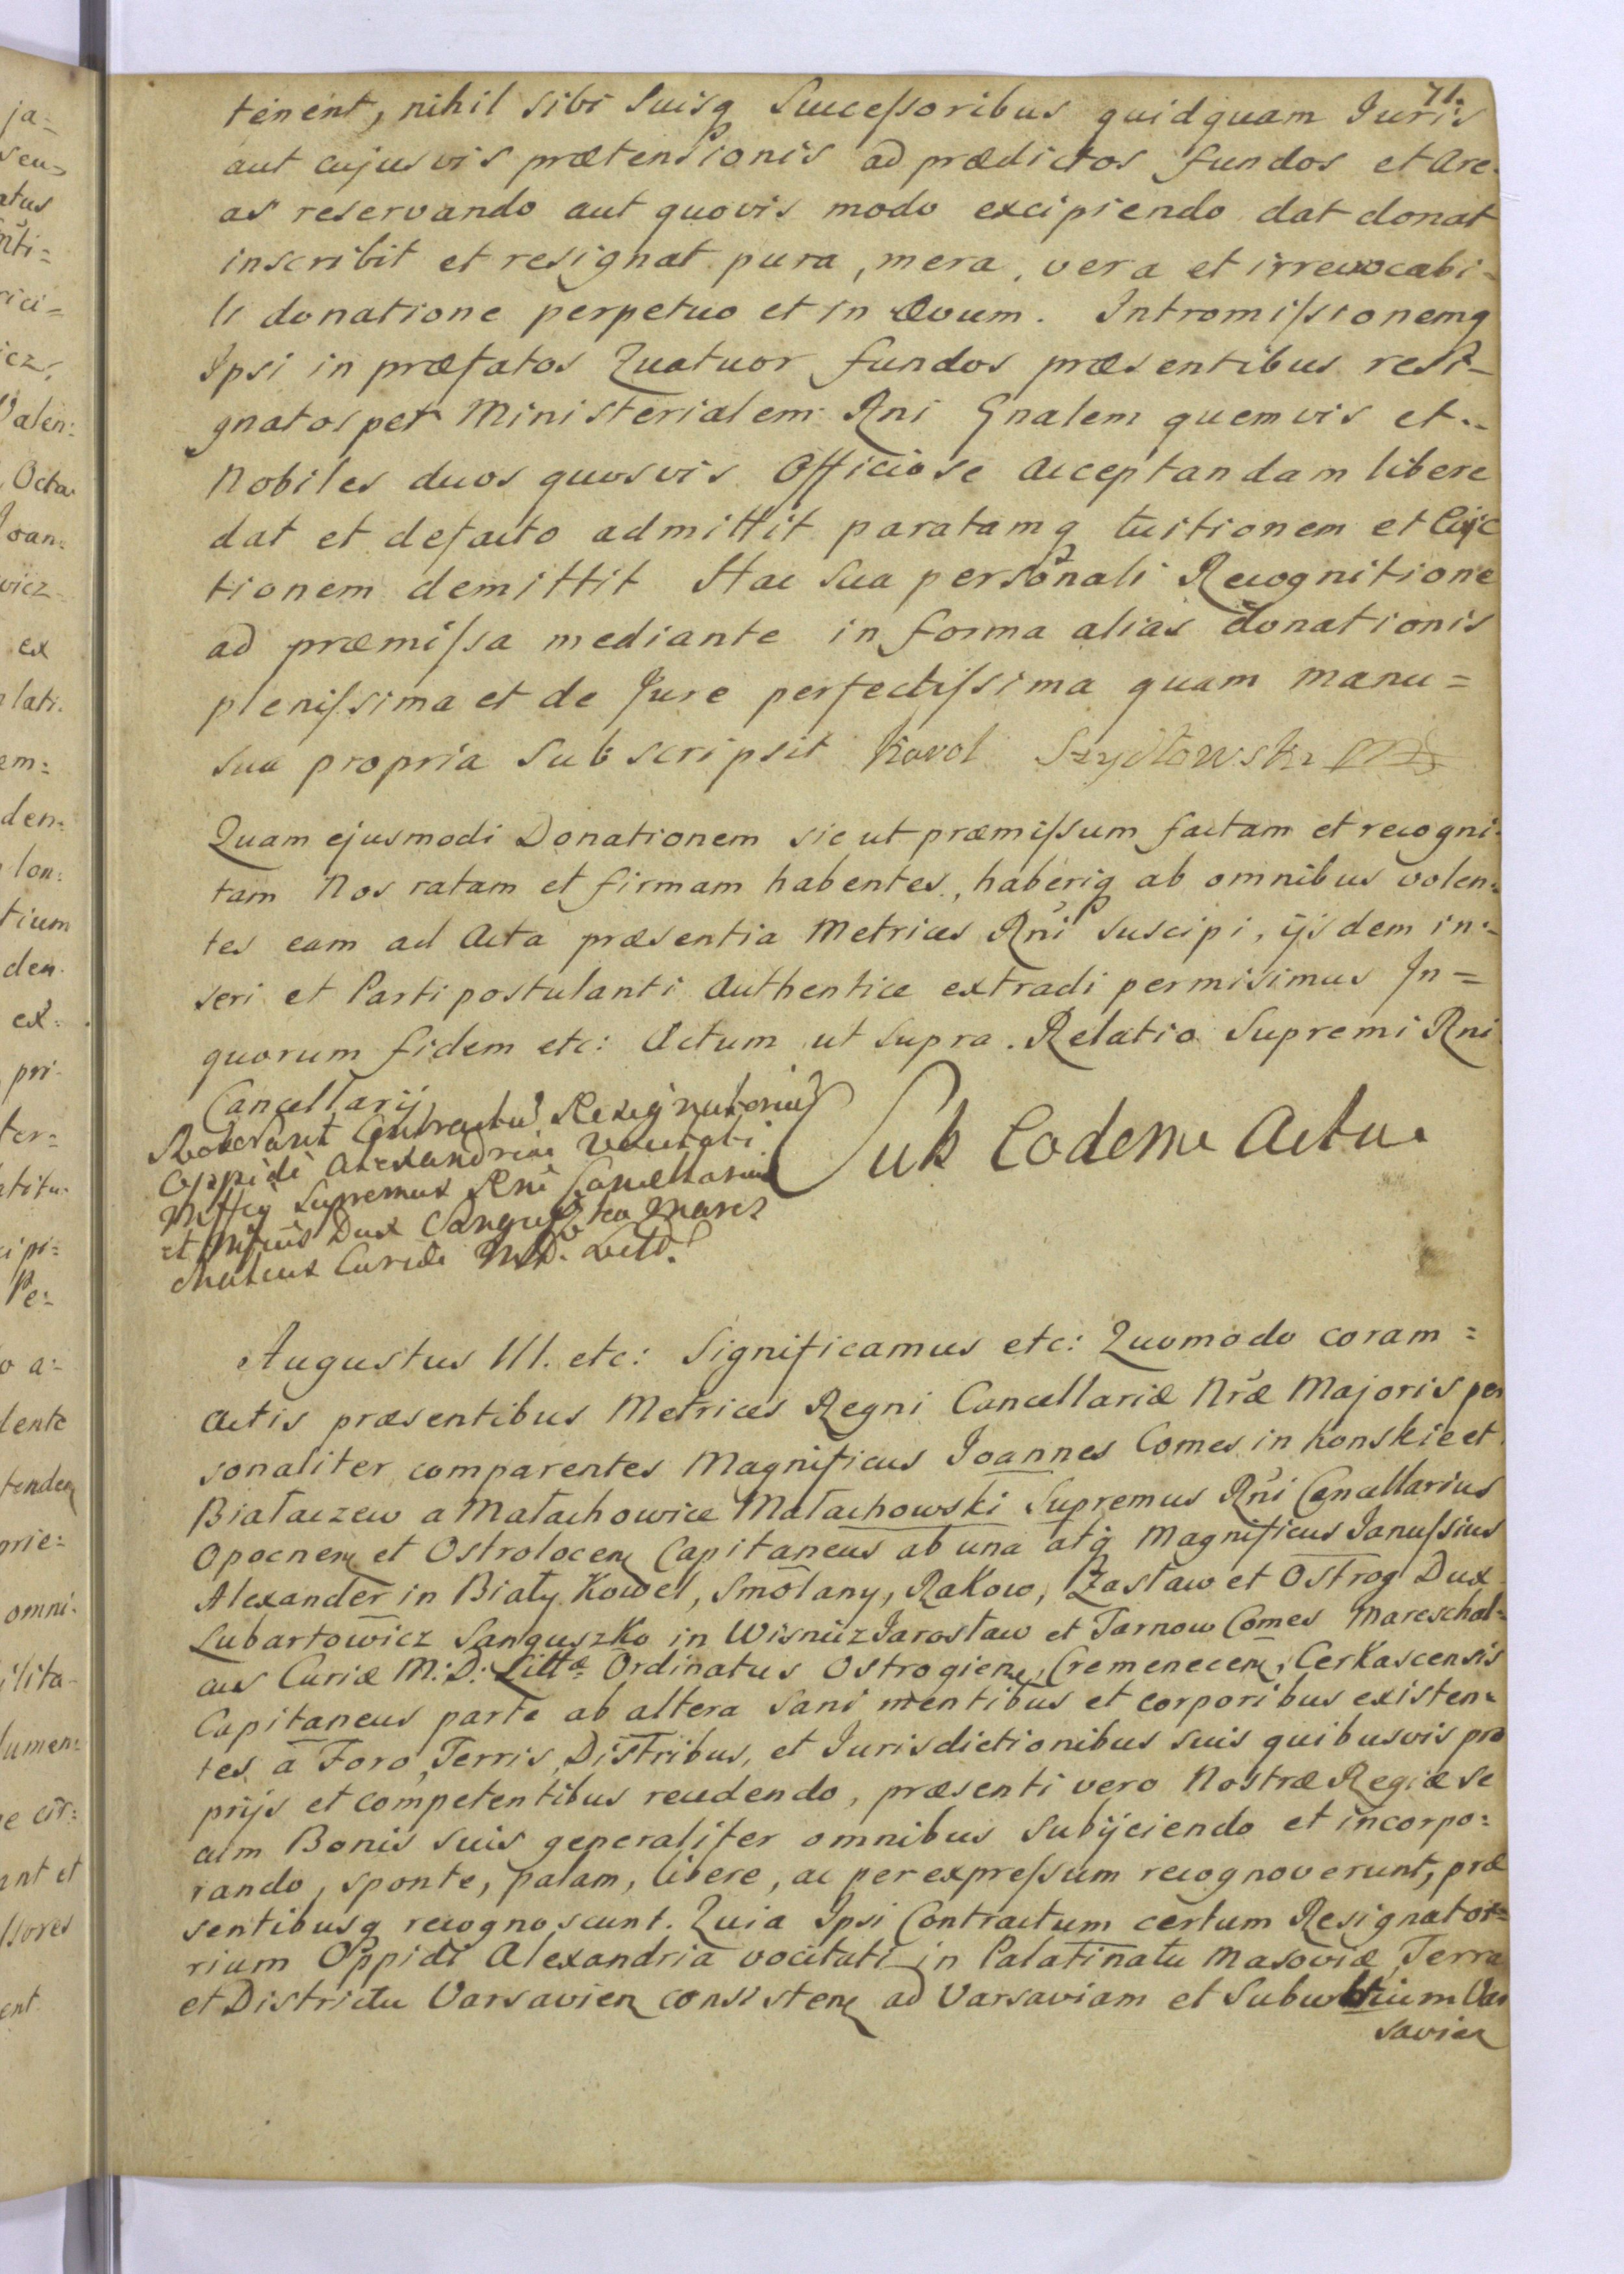 71.
tenent, nihil sibi Suisq Successoribus quidquam Juris
aut cujusvis prætensionis ad prædictos fundos et Are-
as reservando aut quovis modo excipiendo dat donat
inscribit et resignat pura, mera, vera et irrevocabi-
li donatione perpetuo et in Ævum. Intromissionemq
Ipsi in præfatos Quatuor fundos præsentibus resi-
gnatos per Ministerialem Rni Gnalem quemvis et
Nobiles duos quosvis Officiose acceptandam libere
dat et defacto admittit paratamq tuitionem et
tionem demittit Hac sua personali Recognitione
ad præmissa mediante in forma alias donationis
plenissima et de Jure perfectissima quam manu=
sua propria Subscripsit Karol Szydłowski
Quam ejusmodi Donationem sic ut præmissum factam et recogni-
tam Nos ratam et firmam habentes, haberiq ab omnibus volen-
tes eam ad Acta præsentia Metrices Rni suscipi, ijsdem in-
seri et Parti postulanti Authentice extradi permisimus In=
quorum fidem etc: Actum ut supra. Relatio Supremi Rni
Cancellarij
Roborant Contractũ Resignatoriũ
Oppidi Alexandria Vocitati
Mffcg Supremus Rni Cancellarius
et Mfcus Dux Sanguszko Mares
chalcus Curiæ M.D. Litt.
Sub Eodem Actu
Augustus III. etc: Significamus etc: Quomodo coram=
Actis præsentibus Metrices Regni Cancellariæ Nræ Majoris per
sonaliter comparentes Magnificus Joannes Comes in Konskie et
Białaczew a Małachowice Małachowski Supremus Rni Cancellarius
Opocnen et Ostrolocen Capitaneus ab una atq Magnificus Janussius
Alexander in Biały Kowel, Smolany, Rakow, Zasław et Ostrog Dux
Lubartowicz Sanguszko in Wisnicz Jarosław et Tarnow Comes Mareschal=
cus Curiæ M:D: Littæ Ordinatus Ostrogien, Cremenecen, Cerkascensis
Capitaneus parte ab altera sani mentibus et corporibus existen-
tes a Foro, Terris, Distribus, et Jurisdictionibus suis quibusvis pro
prijs et competentibus recedendo, præsenti vero Nostræ Regiæ se
cum Bonis suis generaliter omnibus subijciendo et incorpo:
rando, sponte, palam, libere, ac per expressum recognoverunt, præ
sentibusq recognoscunt. Quia Ipsi Contractum certum Resignato=
rium Oppidi Alexandria vocitati in Palatinatu Masoviæ, Terra
et Districtu Varsavien consisten ad Varsaviam et Suburbium Var
savien